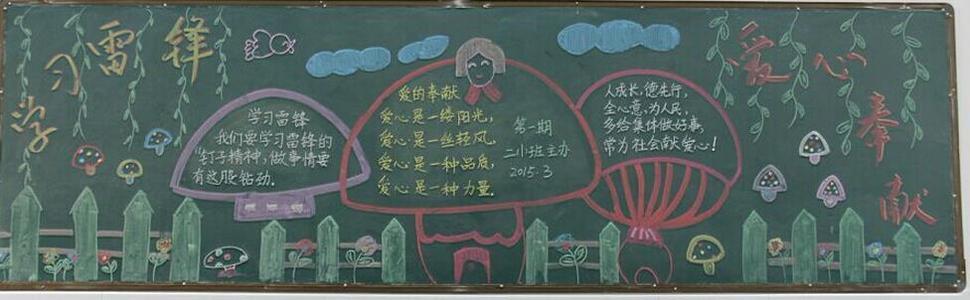 学习雷锋
爱心奉献
学习雷锋
我们要学习雷锋的
"钉子精神",做事情要
有这股钻劲.
爱的奉献
爱心是一缕阳光,
爱心是一丝轻风,
爱心是一种品质,
爱心是一种力量.
第一期
二小班主办
2015.3
人成长,德先行,
全心意,为人民,
多给集体做好事,
常为社会献爱心!